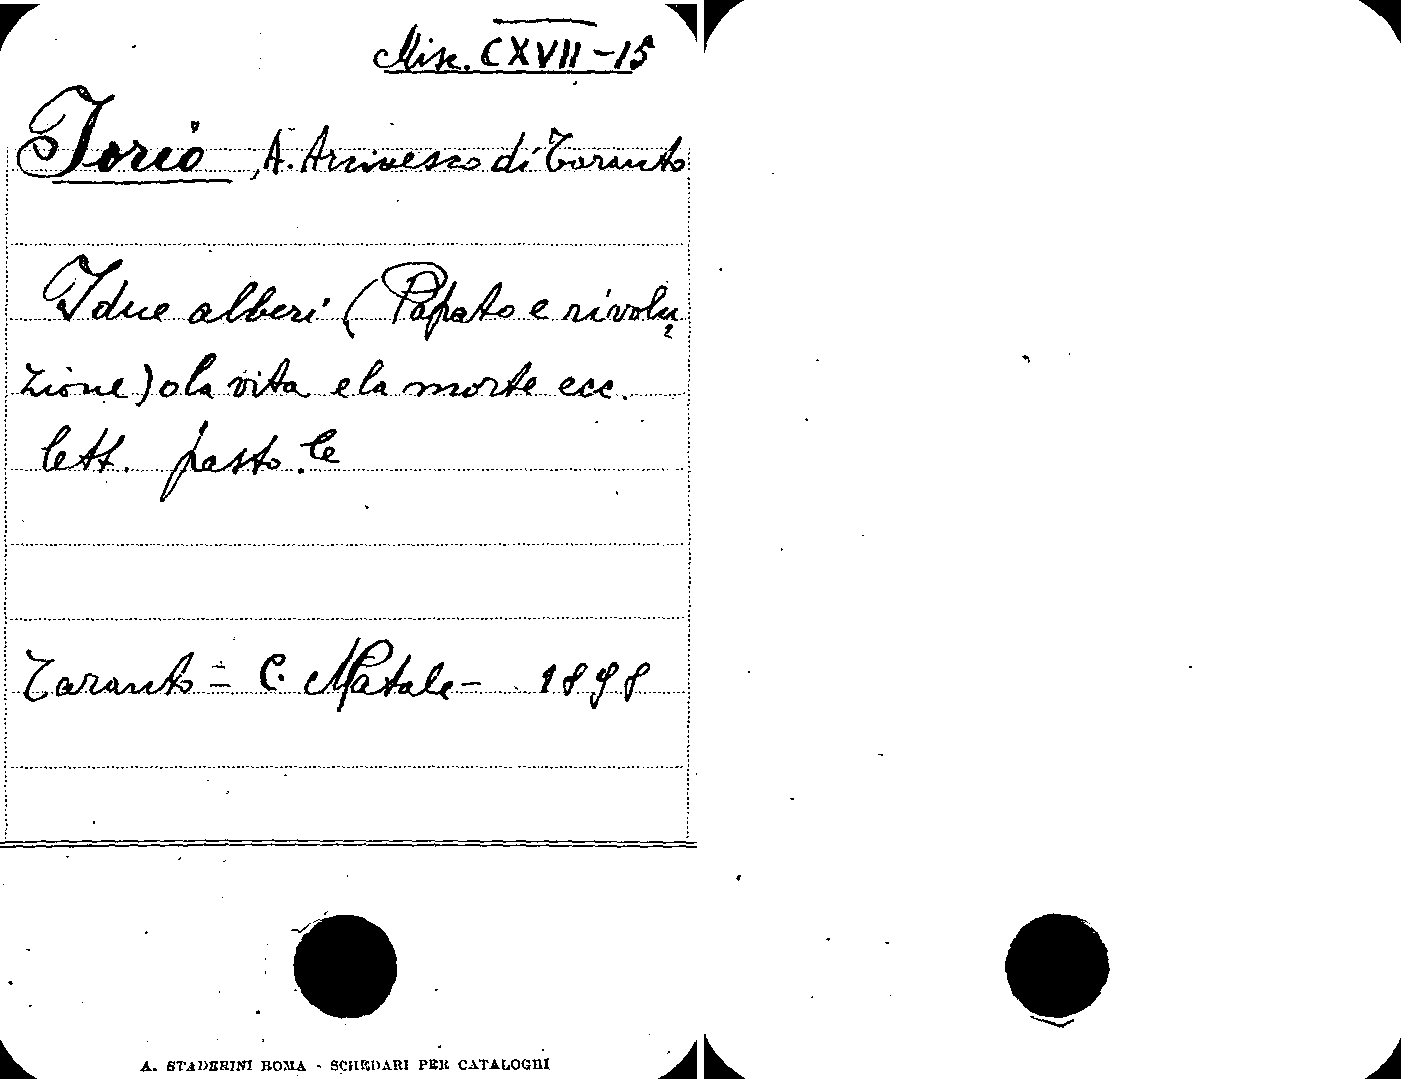 Misc. CXVII - 15
Jorio, A. Arcivesco di Taranto
I due alberi (Papato e rivolu
zione) o la vita e la morte ecc.
lett. pasto.le
Taranto = C. Matale - 1898
A. STADERINI ROMA - SCHEDARI PER CATALOGHI